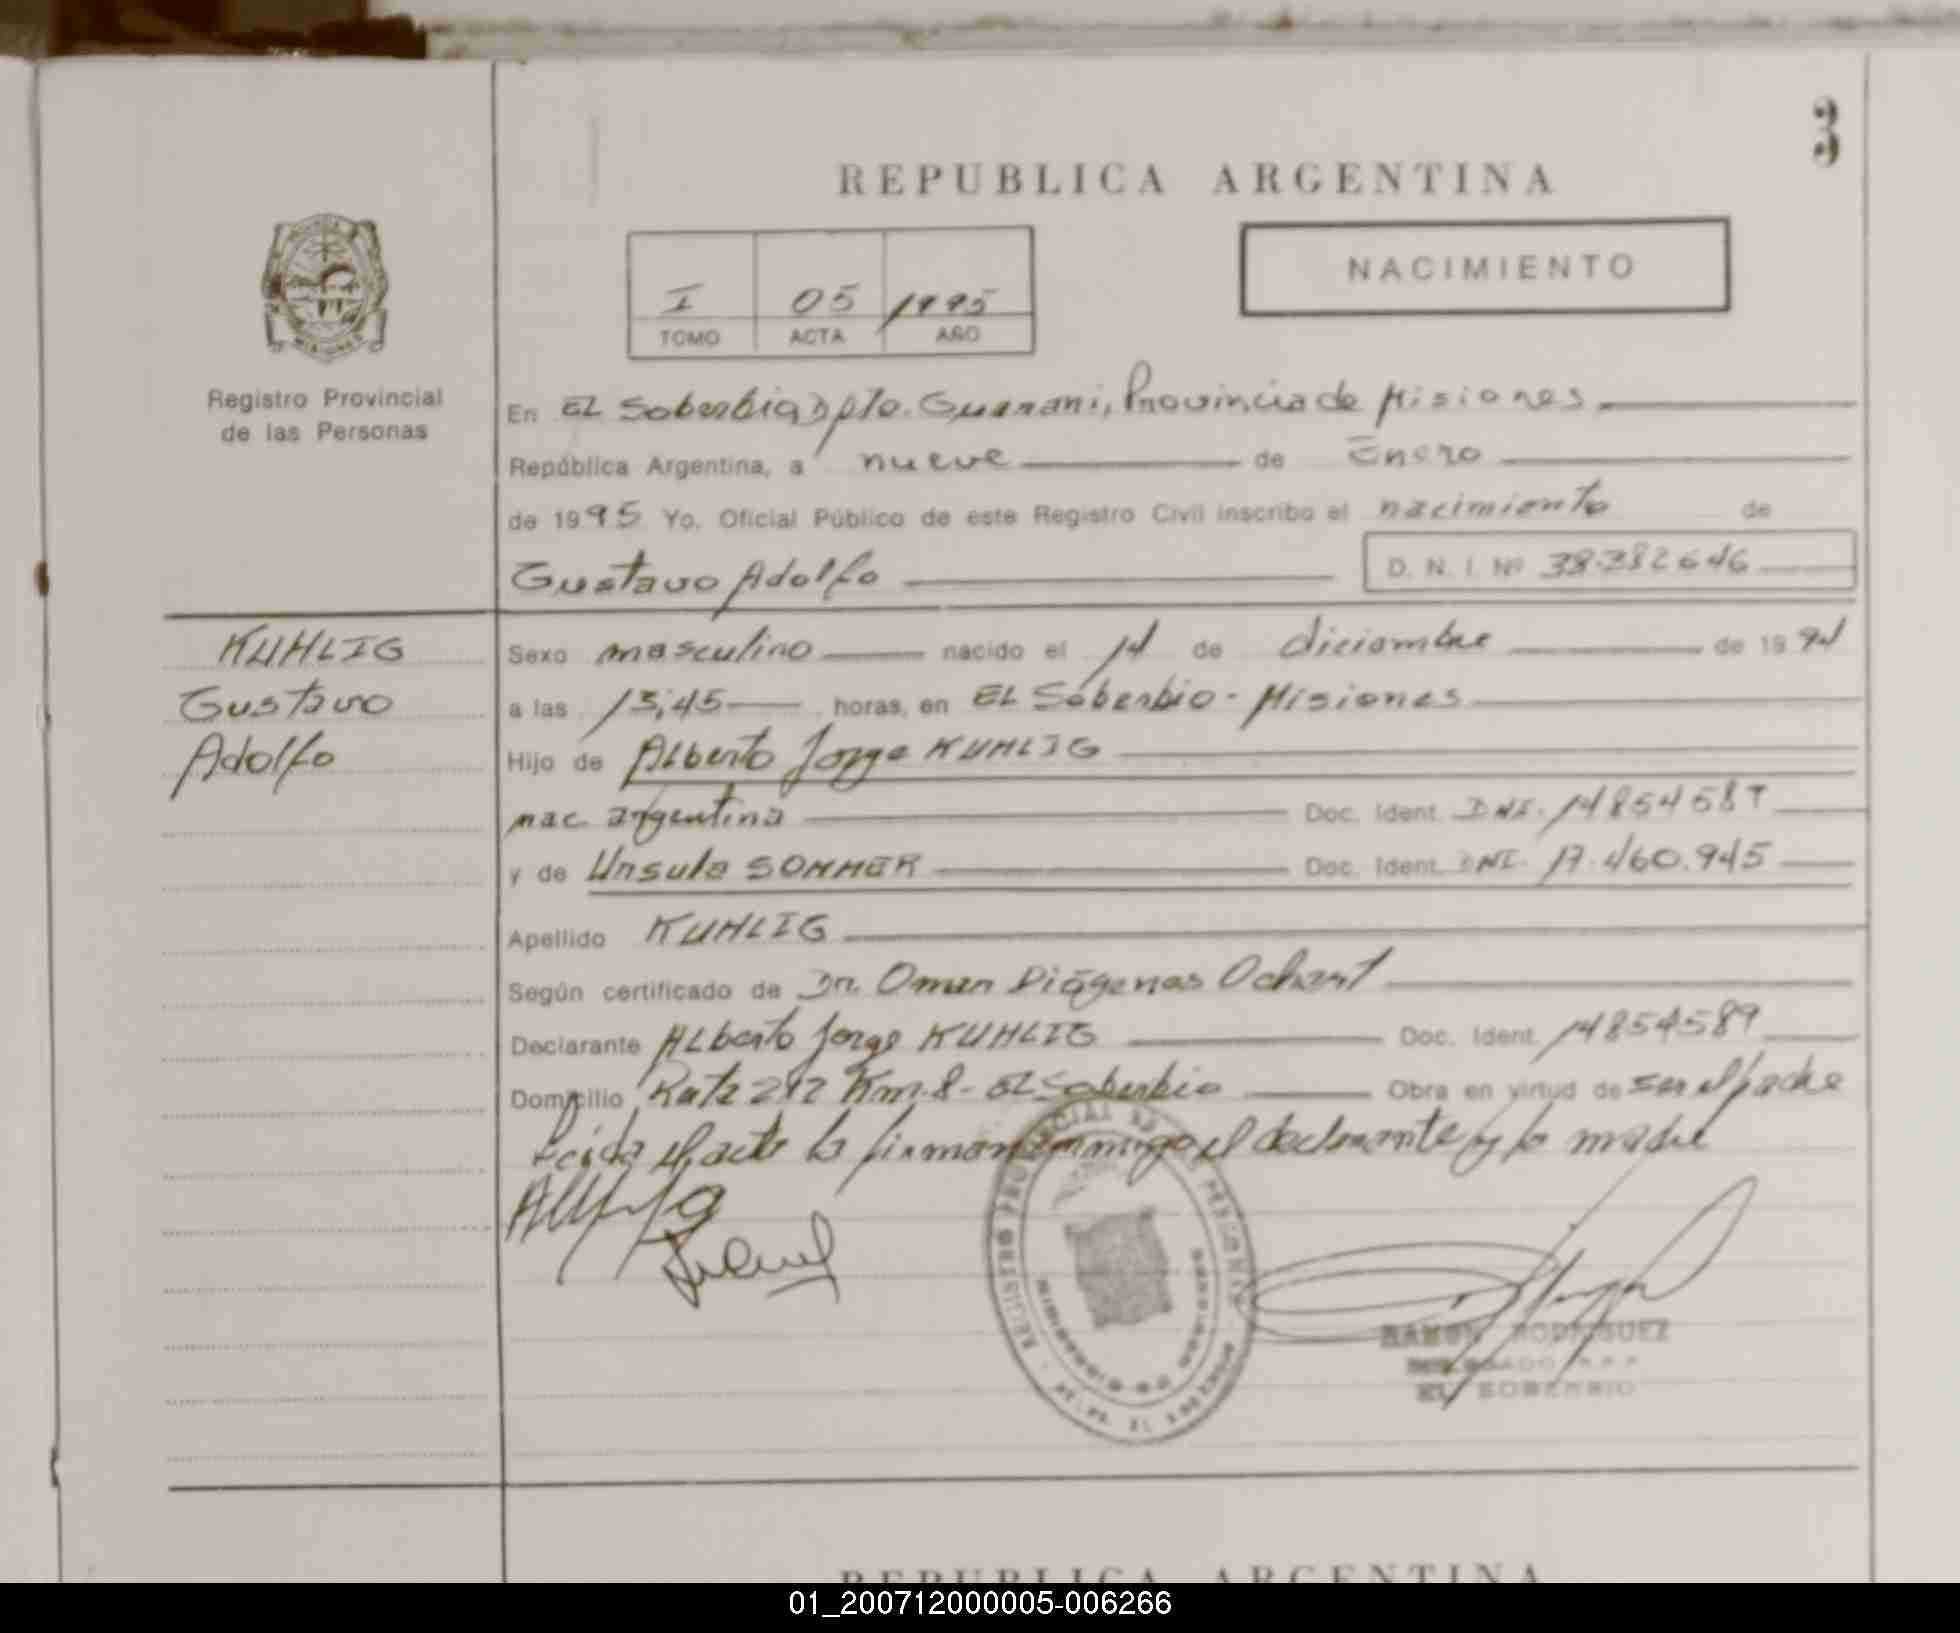 3
REPUBLICA ARGENTINA
I 05 1995
TOMO ACTA AÑO
NACIMIENTO
MISIONES
Registro Provincial
de las Personas
En EL Soberbio, Dpto. Guarani, Provincia de Misiones
República Argentina, a nueve de Enero
de 1995 Yo, Oficial Público de este Registro Civil inscribo el nacimiento de
Gustavo Adolfo D. N. I. Nº 38.382646
KUHLIG
Gustavo
Adolfo
Sexo masculino nacido el 14 de diciembre de 1994
a las 13,45 horas, en EL Soberbio - Misiones
Hijo de Alberto Jorge KUHLIG
nac. argentina Doc. Ident. DNI. 14854589
y de Ursula SOMMER Doc. Ident. DNI. 17.460.945
Apellido KUHLIG
Según certificado de Dr. Omar Diógenes
Declarante ALberto Jorge KUHLIG Doc. Ident. 14854589
Domicilio Ruta 212 Km. 8 - EL Soberbio Obra en virtud de ser el padre
Leida el acta la firman conmigo el declarante y la madre
REGISTRO PROVINCIAL DE LAS PERSONAS
RAMON RODRIGUEZ
DELEGADO R.P.P.
EL SOBERBIO
REPUBLICA ARGENTINA
01_200712000005-006266